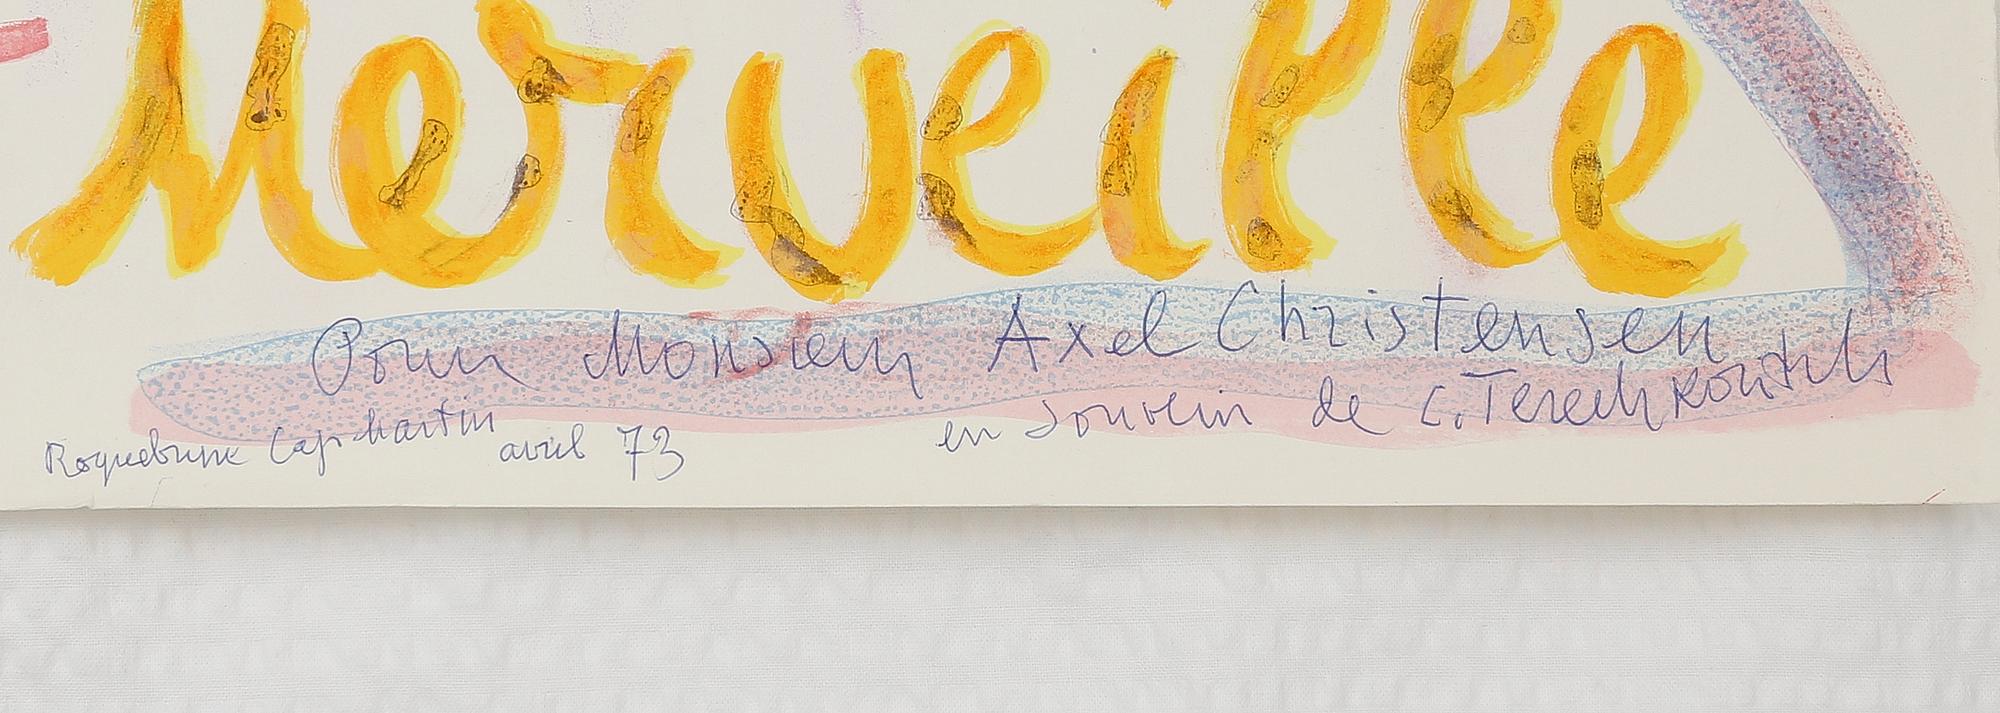 Merveille
Pour Monsieur Axel Christensen
en souvein de C. Terechkovitch
Roquebrune Cap martin
avril 73